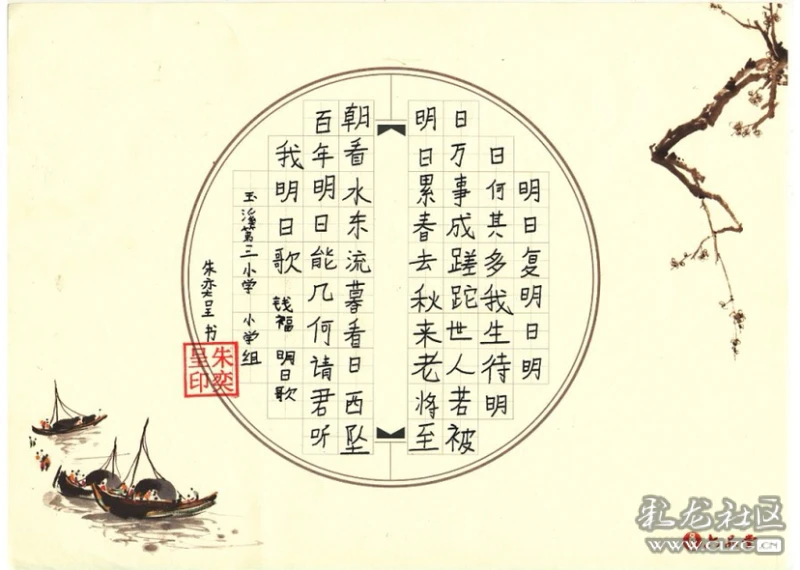 明日复明日明
日何其多我生待明
日万事成蹉跎世人若被
明日累春去秋来老将至
朝看水东流暮看日西坠
百年明日能几何请君听
我明日歌 钱福 明日歌
玉溪第三小学 小学组
朱奕呈书
朱奕呈印
彩龙社区
WWW.CLZG.CN